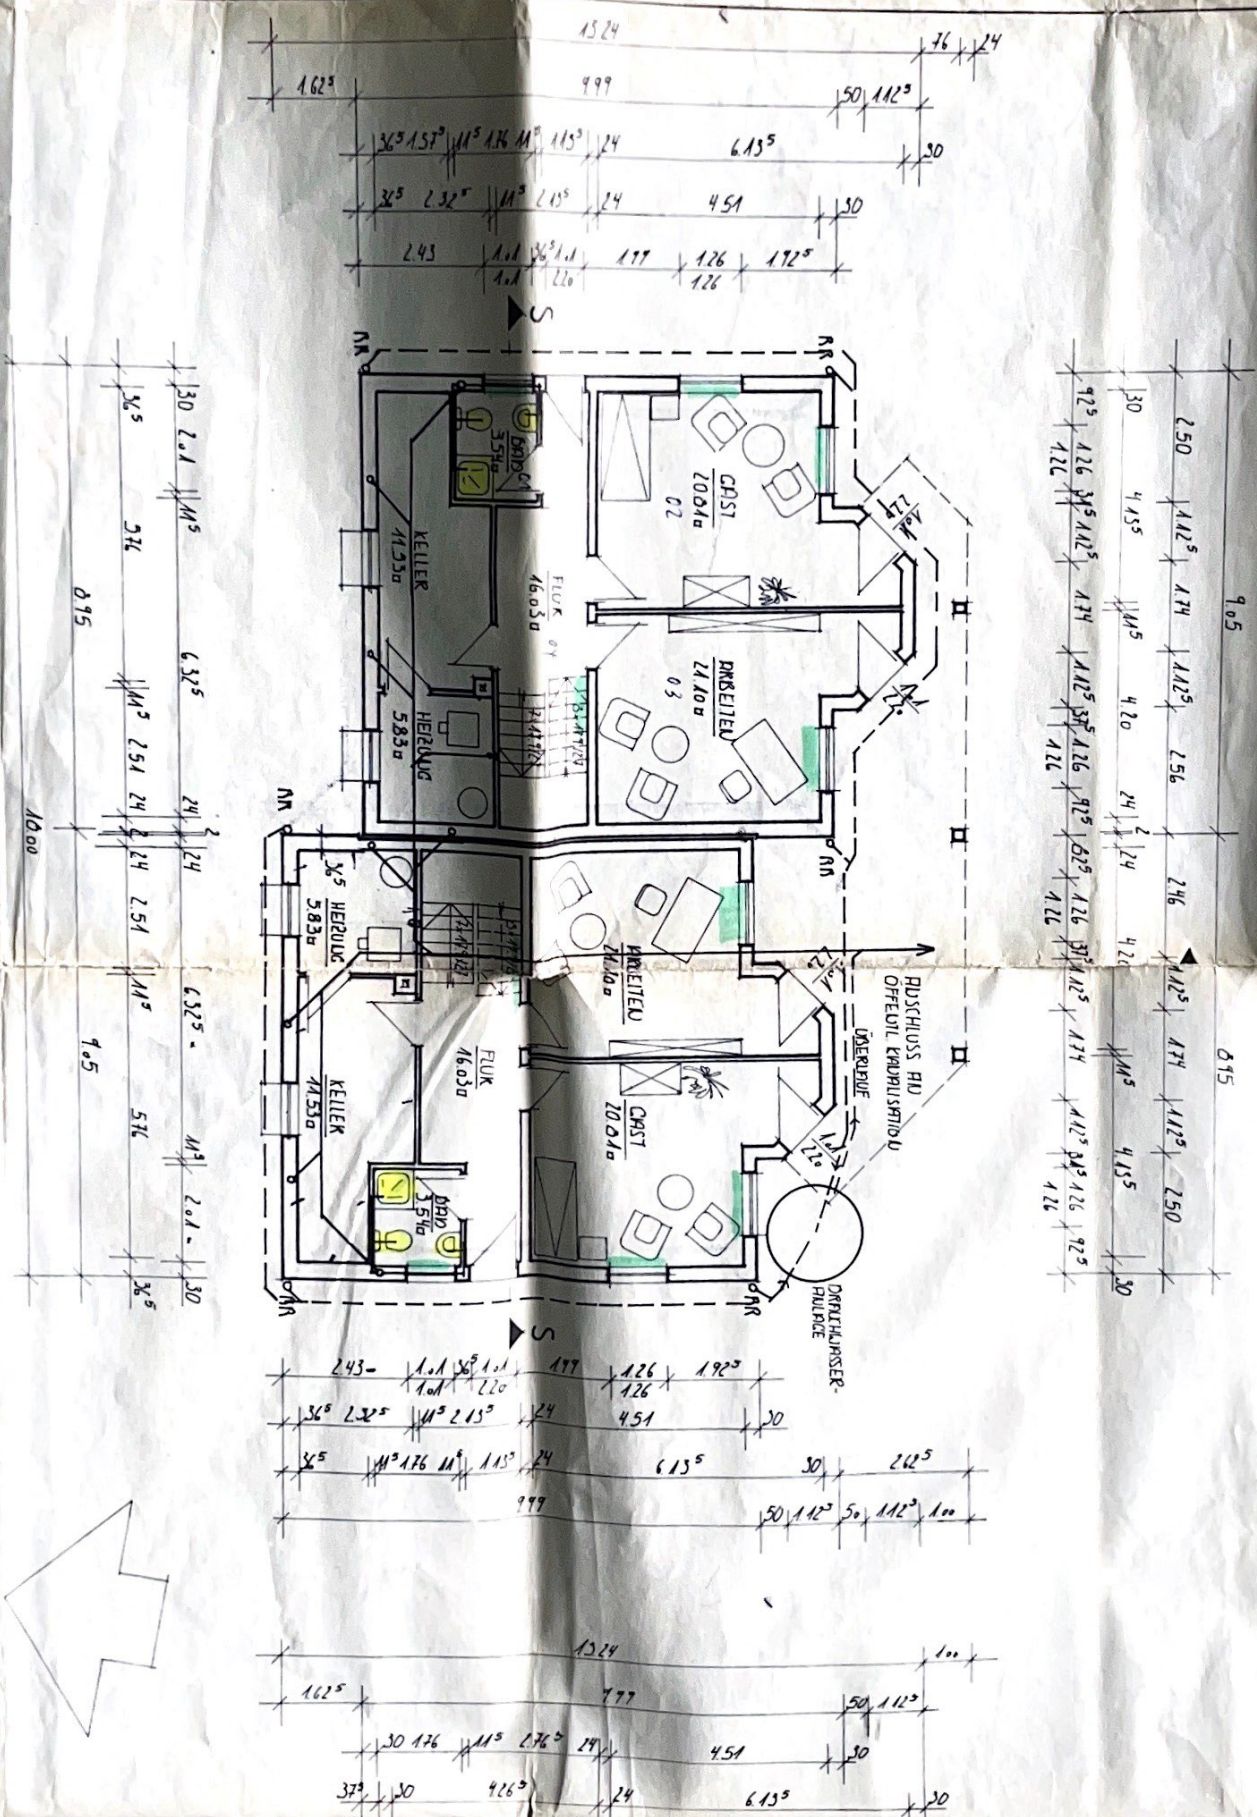 13 24
76
24
1.62⁵
9.99
50
1.12⁵
36⁵ 1.57⁵ 11⁵ 1.76 11⁵ 1.13⁵ 24
6.13⁵
30
36⁵ 2.32⁵ 11⁵ 2.13⁵ 24
4.51
30
2.43
1.01
1.01
36⁵
1.01
2.20
1.99
1.26
1.26
1.92⁵
S
RR
RR
BAD 01
3.54
GAST
20.01
02
KELLER
11.53
FLUR
16.03
04
ARBEITEN
21.10
03
HEIZUNG
5.83
RR
RR
HEIZUNG
5.83
36⁵
ARBEITEN
21.10
FLUR
16.03
KELLER
11.53
GAST
20.01
BAD
3.54
ANSCHLUSS AN
OFFENTL KANALISATION
ÜBERLAUF
1.01
2.20
BRAUCHWASSER-
ANLAGE
RR
RR
S
9.05
8.95
2.50
1.12⁵
1.74
1.12⁵
2.56
2.46
1.12⁵
1.74
1.12⁵
2.50
30
4.13⁵
11⁵
4.20
24
2
24
4.20
11⁵
4.13⁵
30
92⁵
1.26
1.26
1.12⁵
1.74
1.12⁵
1.26
1.26
92⁵
62⁵
1.26
1.26
1.12⁵
1.74
1.12⁵
1.26
1.26
92⁵
30
2.01
11⁵
6.32⁵
24
2
24
6.32⁵
11⁵
2.01
30
36⁵
11⁵
2.51
24
2
24
2.51
11⁵
5.76
36⁵
8.95
9.05
10.00
2.43
1.01
1.01
36⁵
1.01
2.20
1.99
1.26
1.26
1.92⁵
36⁵ 2.32⁵ 11⁵ 2.13⁵ 24
4.51
30
36⁵ 11⁵ 1.76 11⁵ 1.13⁵ 24
6.13⁵
30
2.62⁵
9.99
50
1.12⁵
50
1.12⁵
1.00
13 24
1.00
1.62⁵
9.99
50
1.12⁵
30 1.76 11⁵ 2.76⁵ 24
4.51
30
37⁵
30
4.26⁵
24
6.13⁵
30